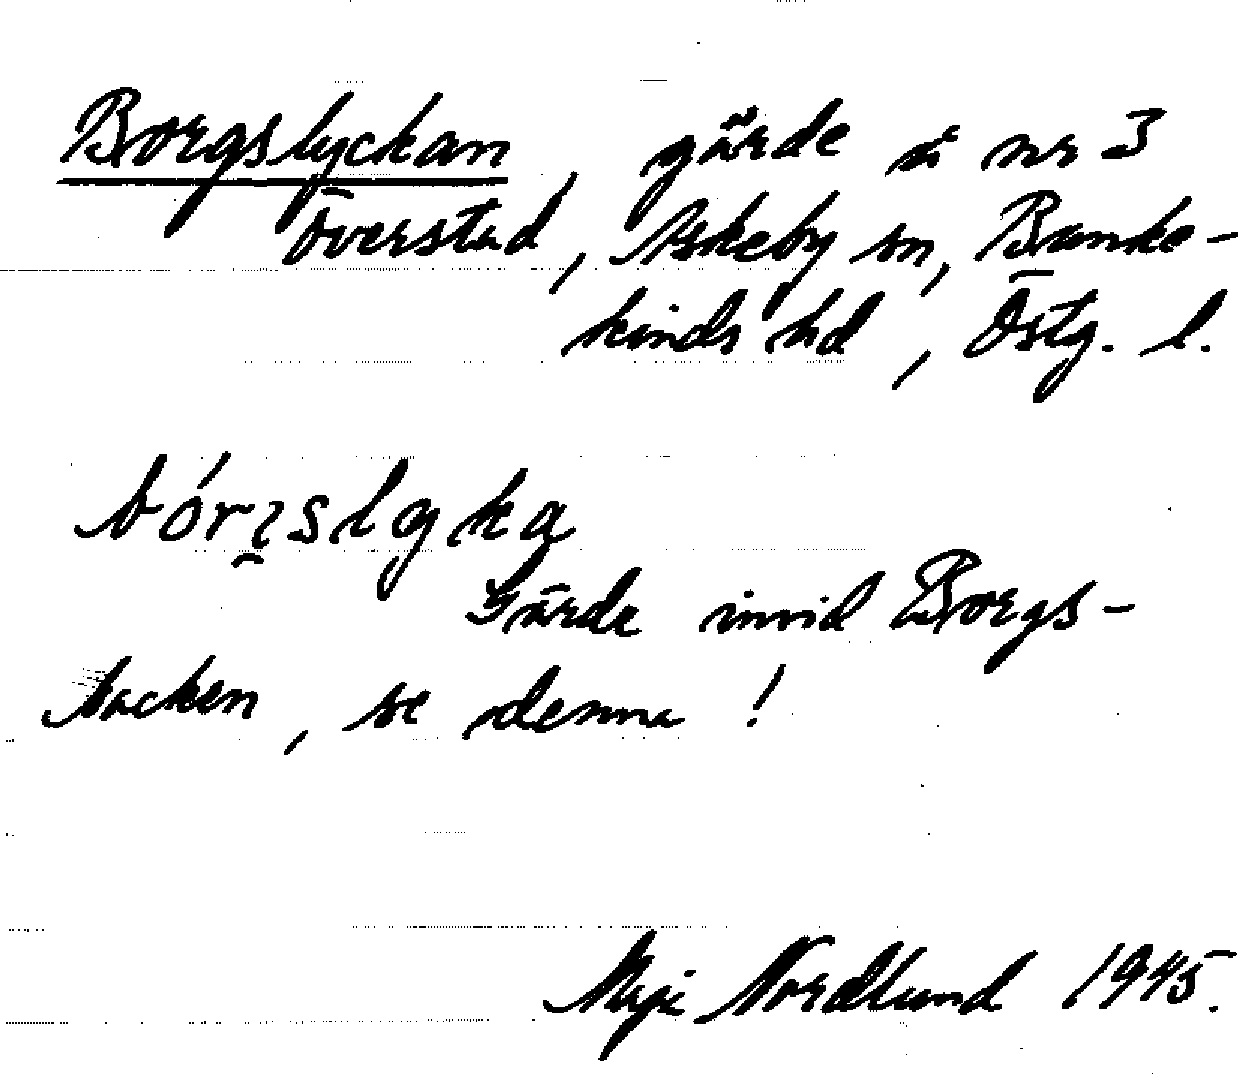 Borgslyckan, gärde å nr 3
Överstad, Askeby sn, Banke-
kinds hd, Östg. l.
bórı̯slyka
Gärde invid Borgs-
backen, se denna!
Maji Nordlund 1945.